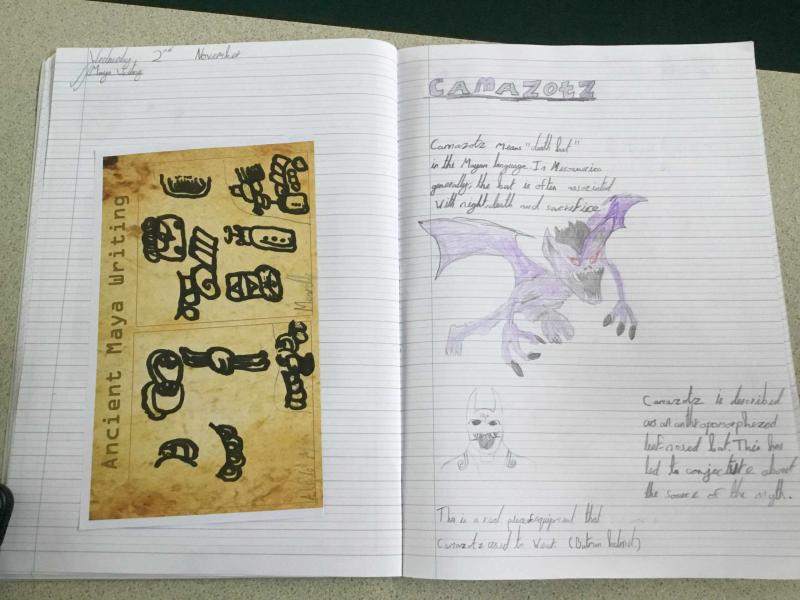 Wednesday, 2nd November
Maya Writing
Ancient Maya Writing
CAMAZOTZ
Camazotz means "death bat"
in the Mayan language. In Mesoamerica
generally, the bat is often associated
with night, death and sacrifice.
Camazotz is described
as an anthropomorphized
leaf-nosed bat. This has
led to conjecture about
the source of the myth.
This is a real piece of equipment that
Camazotz used to wear (Batman